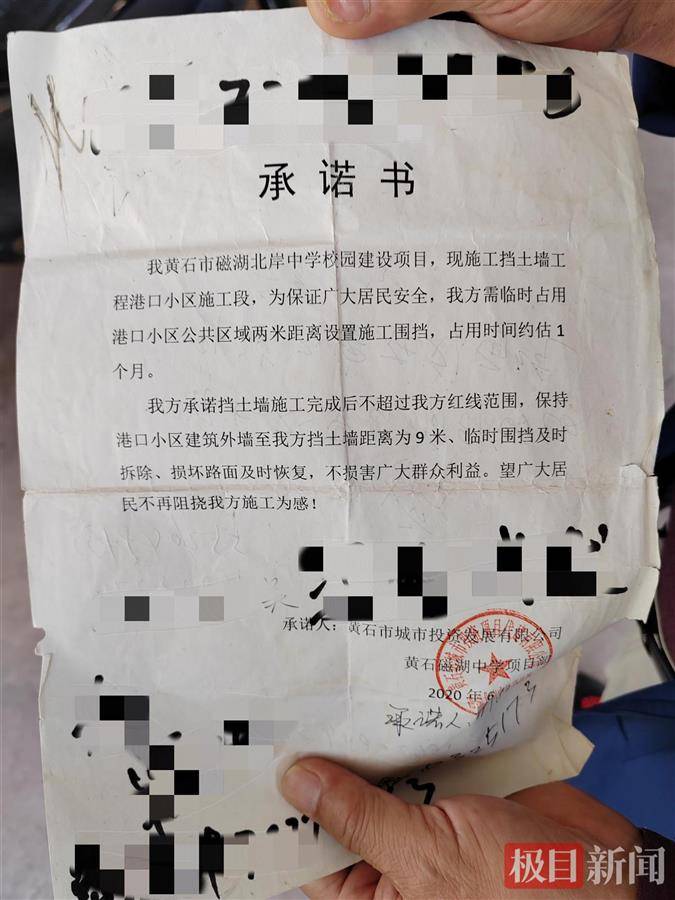 承诺书
我黄石市磁湖北岸中学校园建设项目，现施工挡土墙工
程港口小区施工段，为保证广大居民安全，我方需临时占用
港口小区公共区域两米距离设置施工围挡，占用时间约估1
个月。
我方承诺挡土墙施工完成后不超过我方红线范围，保持
港口小区建筑外墙至我方挡土墙距离为9米、临时围挡及时
拆除、损坏路面及时恢复，不损害广大群众利益。望广大居
民不再阻挠我方施工为感！
承诺人：黄石市城市投资发展有限公司
黄石磁湖中学项目部
2020年6
承诺人
极目新闻